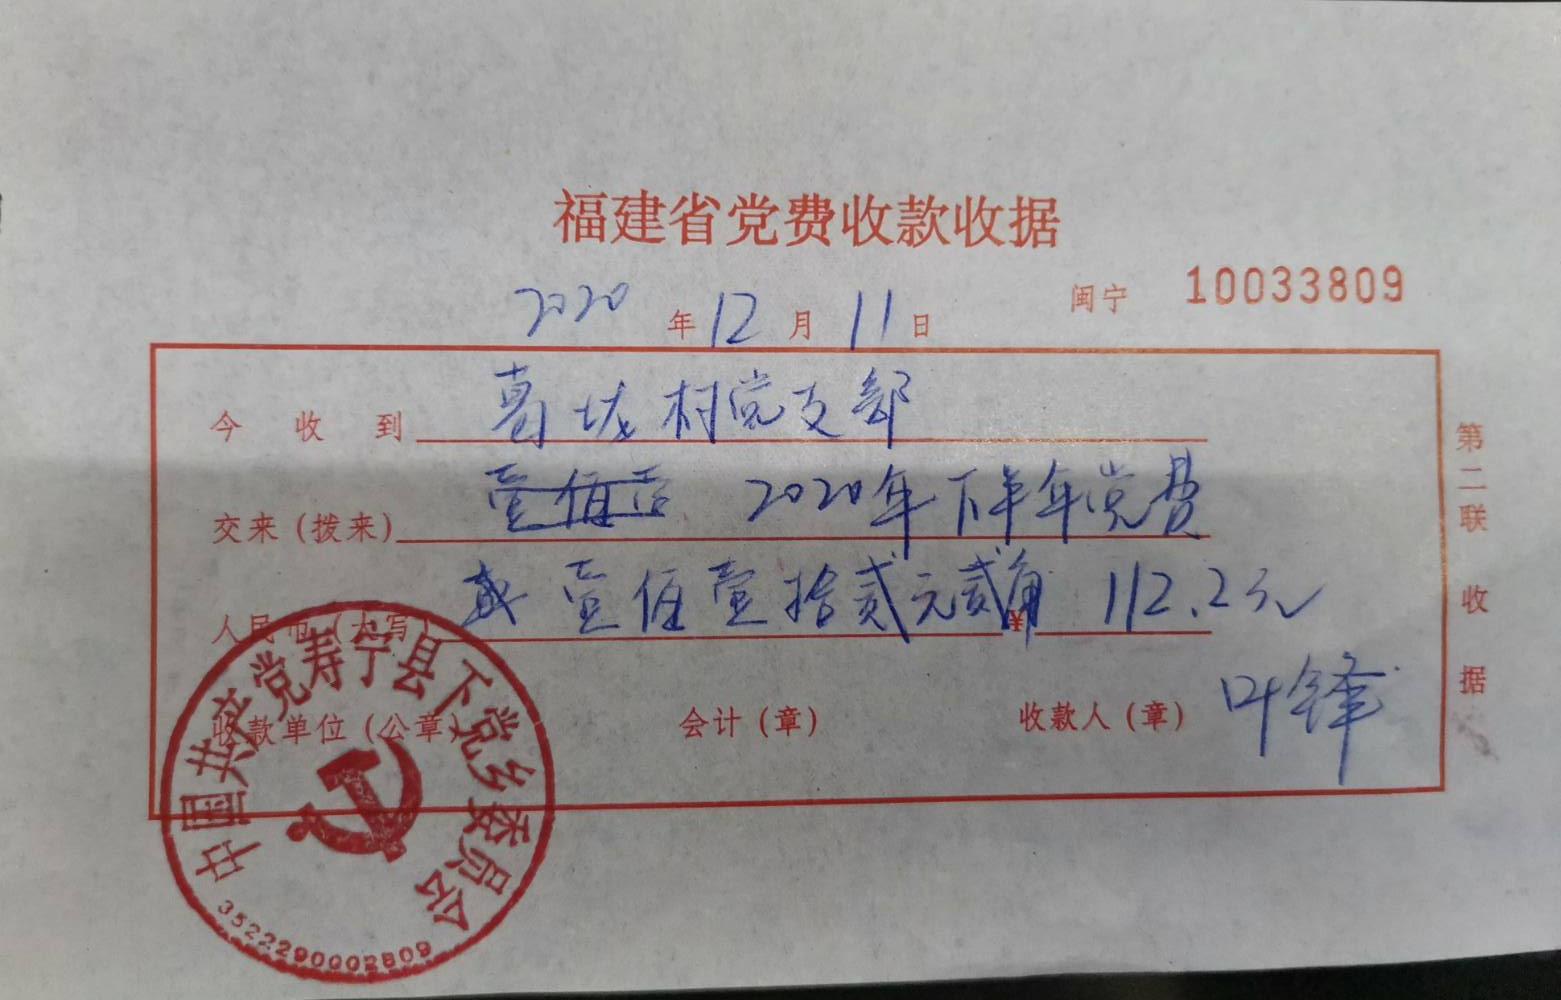 福建省党费收款收据
2020年12月11日 闽宁 10033809
今收到 葛垅村党支部
交来（拨来） 壹佰壹 2020年下半年党费
人民币（大写） 壹佰壹拾贰元贰角 ¥ 112.2元
收款单位（公章） 会计（章） 收款人（章） 叶锋
第二联 收据
中国共产党寿宁县下党乡委员会
3522290002809